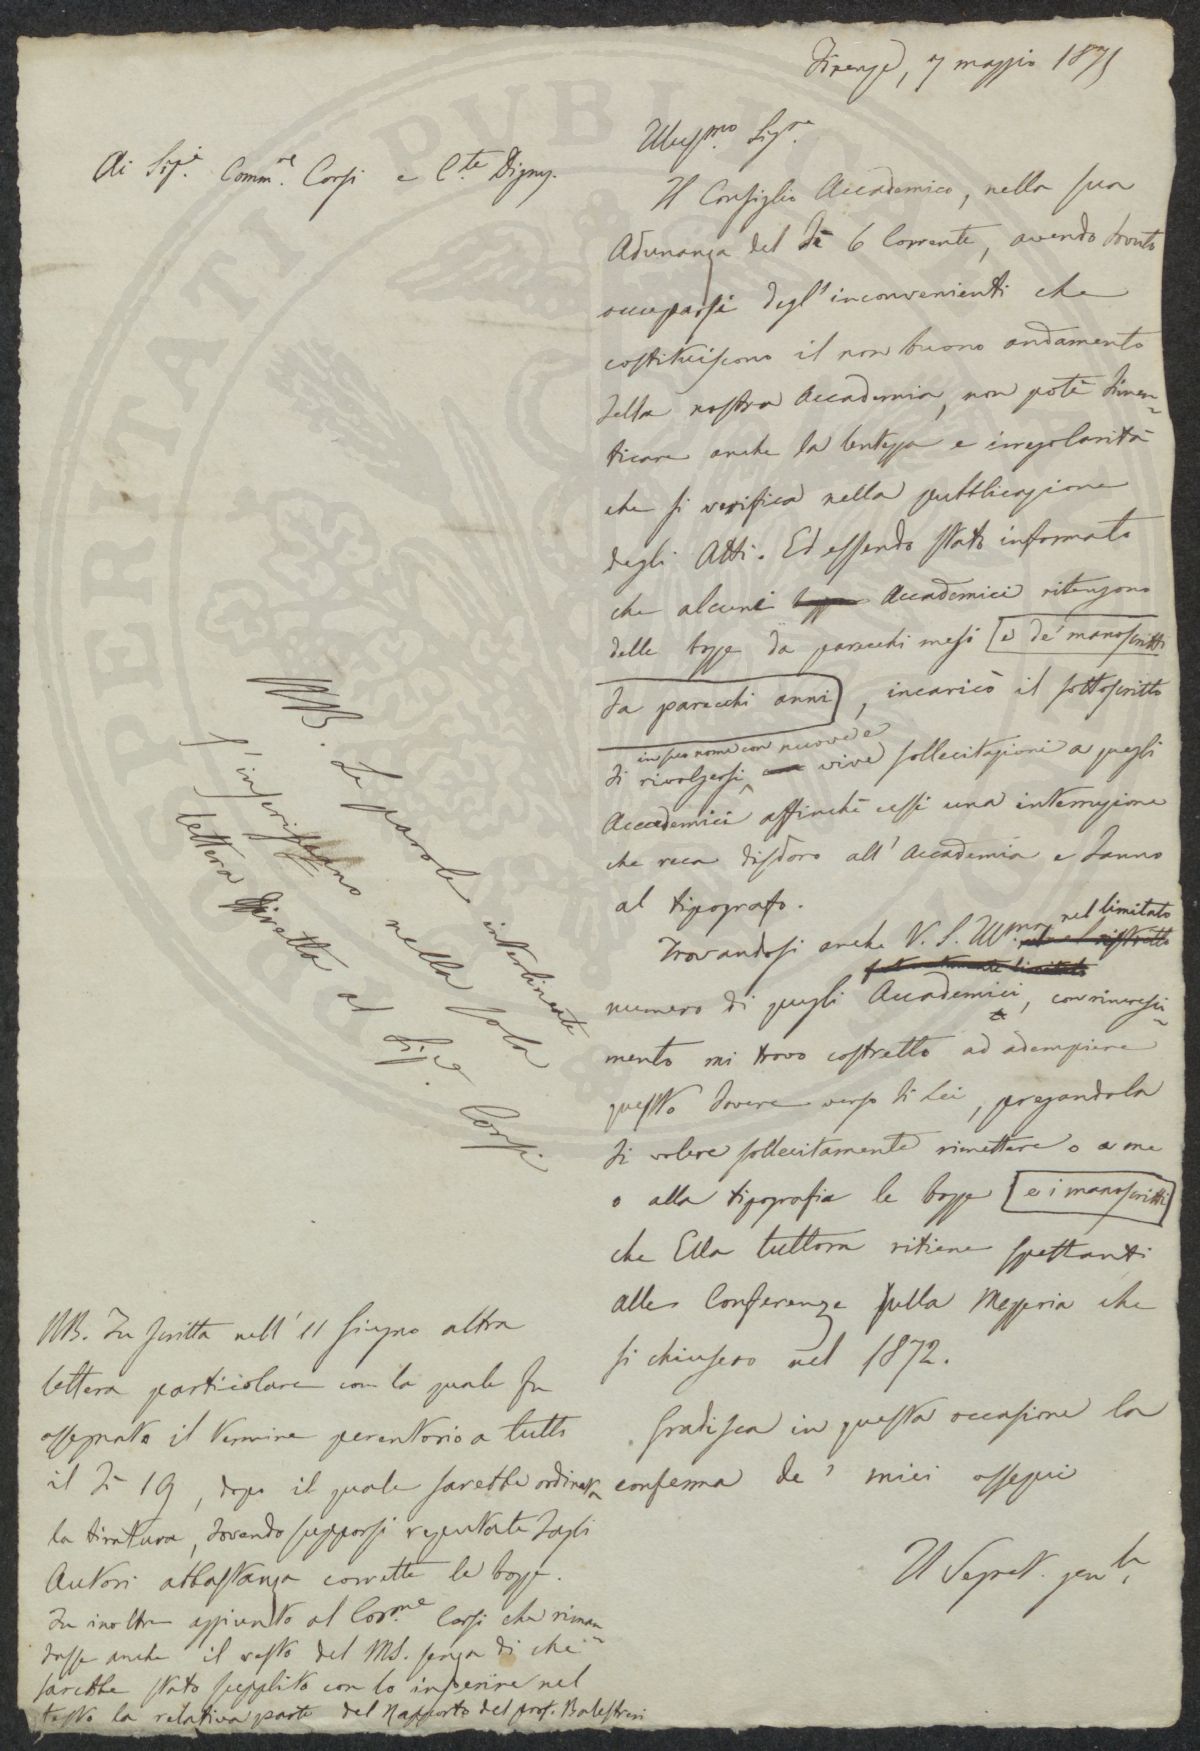 Firenze, 7 maggio 1875
Ai Sigi. Comm.re Corsi e C.te Digny.
Illus.mo Sig.re
Il Consiglio Accademico, nella sua
Adunanza del dì 6 Corrente, avendo dovuto
occuparsi degl'inconvenienti che
costituiscono il non buono andamento
della nostra Accademia, non potè dimen-
ticare anche la lentezza e irregolarità
che si verifica nella pubblicazione
degli Atti. Ed essendo stato informato
che alcuni bozze Accademici ritengono
delle bozze da parecchi mesi [e de' manoscritti
da parecchi anni], incaricò il sottoscritto
in suo nome con nuove e
di rivolgersi, con vive sollecitazioni a quegli
Accademici affinchè cessi una interruzione
che reca disdoro all'Accademia e danno
al tipografo.
Trovandosi anche V. S. Ill.ma nel limitato
nel ristretto
fortunatamente limitato
numero di quegli Accademici, con rincresci-
mento mi trovo costretto ad adempiere
questo dovere verso di Lei, pregandola
di volere sollecitamente rimettere o a me
o alla tipografia le bozze [e i manoscritti]
che Ella tuttora ritiene spettanti
alle Conferenze sulla Mezzeria che
si chiusero nel 1872.
Gradisca in questa occasione la
conferma de' miei ossequi
Il Segret. gen.le
NB. Le parole interlineate
s'inseriscano nella sola
lettera diretta al Sig.e Corsi
NB. Fu scritta nell'11 Giugno altra
lettera particolare con la quale fu
assegnato il termine perentorio a tutto
il dì 19, dopo il quale sarebbe ordinata
la tiratura, dovendo supporsi reputate dagli
Autori abbastanza corrette le bozze.
Fu inoltre aggiunto al Com.me Corsi che riman-
dasse anche il resto del MS. senza di che
sarebbe stato supplito con lo inserire nel
testo la relativa parte del Rapporto del prof. Balestreri